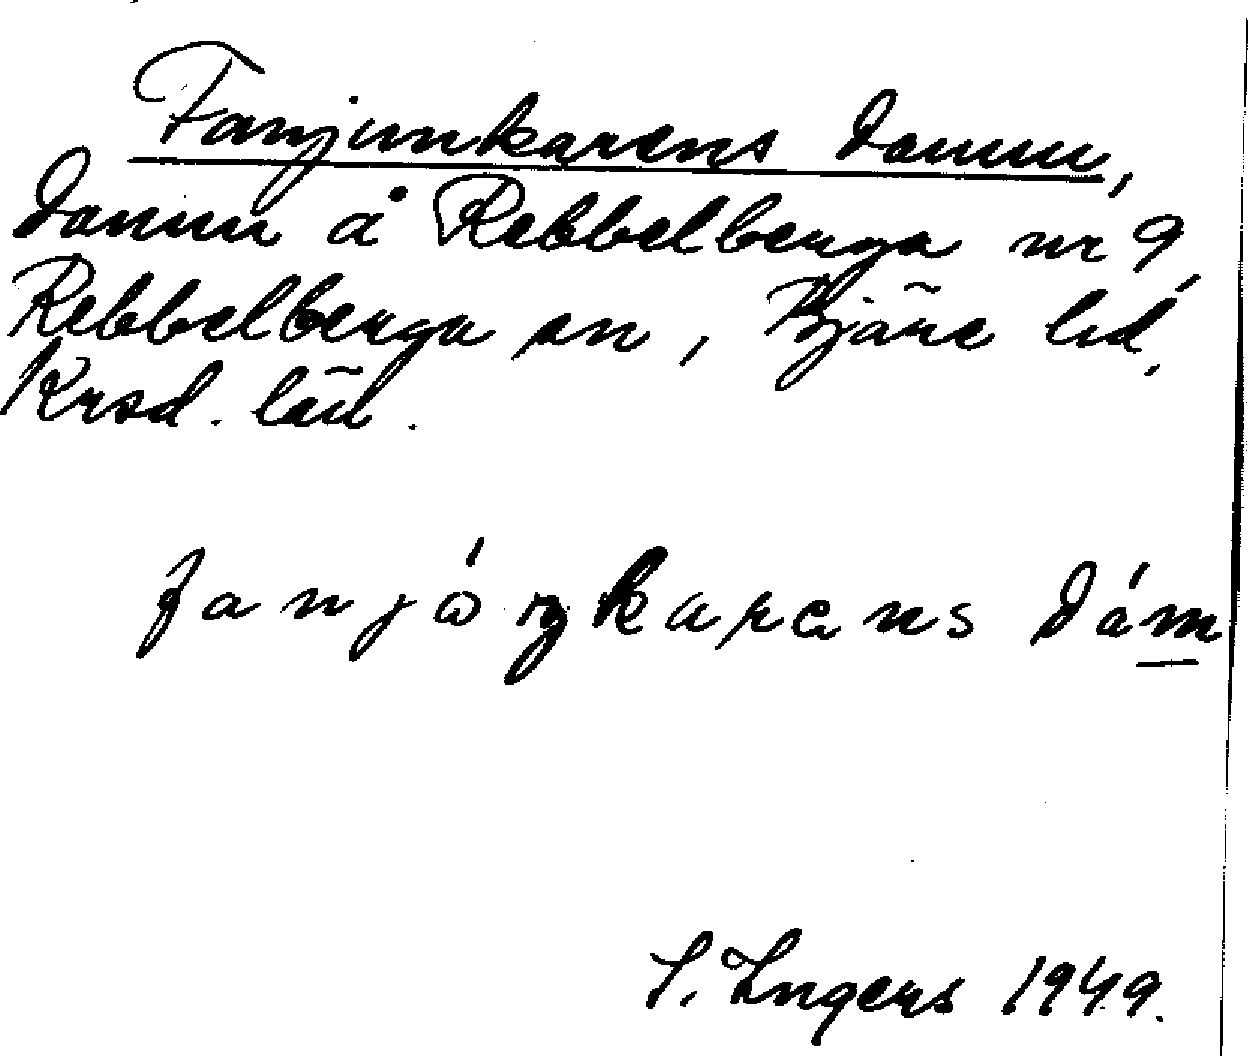 Fanjunkarens damm,
damm å Rebbelberga nr 9,
Rebbelberga sn, Bjäre hd,
Krsd. län.
fanjóŋkarens dám
I. Ingers 1949.